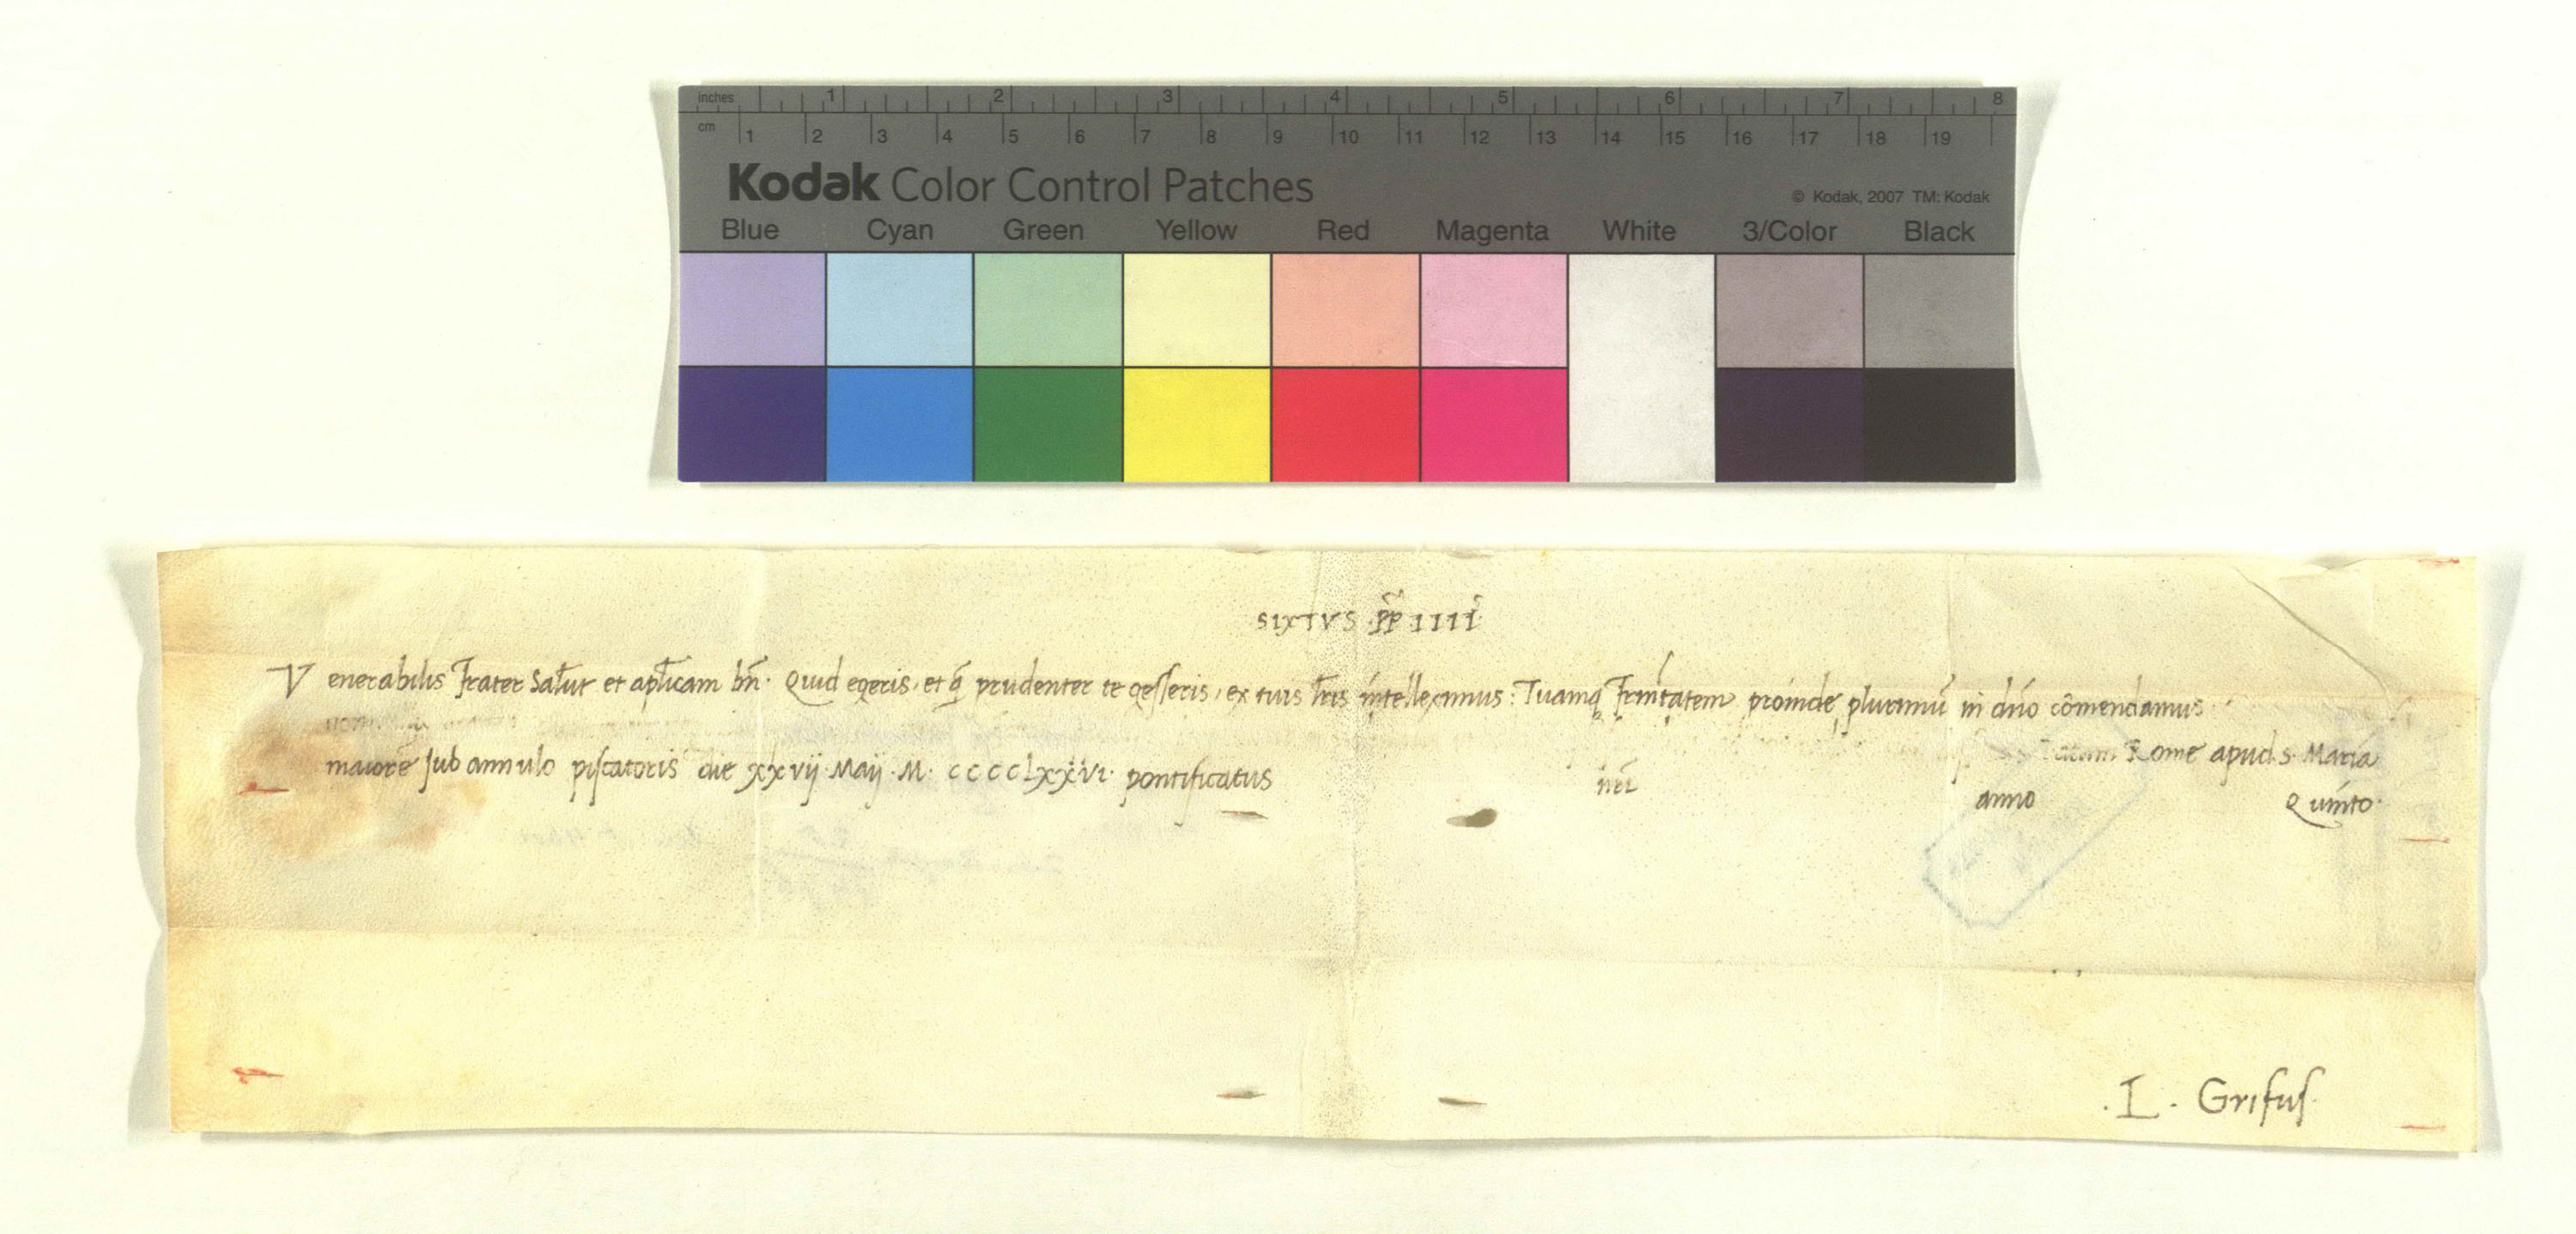 inches 1 2 3 4 5 6 7 8
cm 1 2 3 4 5 6 7 8 9 10 11 12 13 14 15 16 17 18 19
Kodak Color Control Patches
© Kodak, 2007 TM: Kodak
Blue Cyan Green Yellow Red Magenta White 3/Color Black
SIXTVS PP̄ IIII
Venerabilis Frater Salut̄ et apl̄icam bn̄. Quid egeris, et q̄ prudenter te gesseris, ex tuis l̄ris intelleximus: Tuamq Frnītatem proinde plurimū in dn̄o cōmendamus
Datum Rome apud S. Mariā
maiorē sub annulo piscatoris die xxvij Maij M. CCCCLXXVI. pontificatus nr̄i anno Quinto.
.L. Grifus.